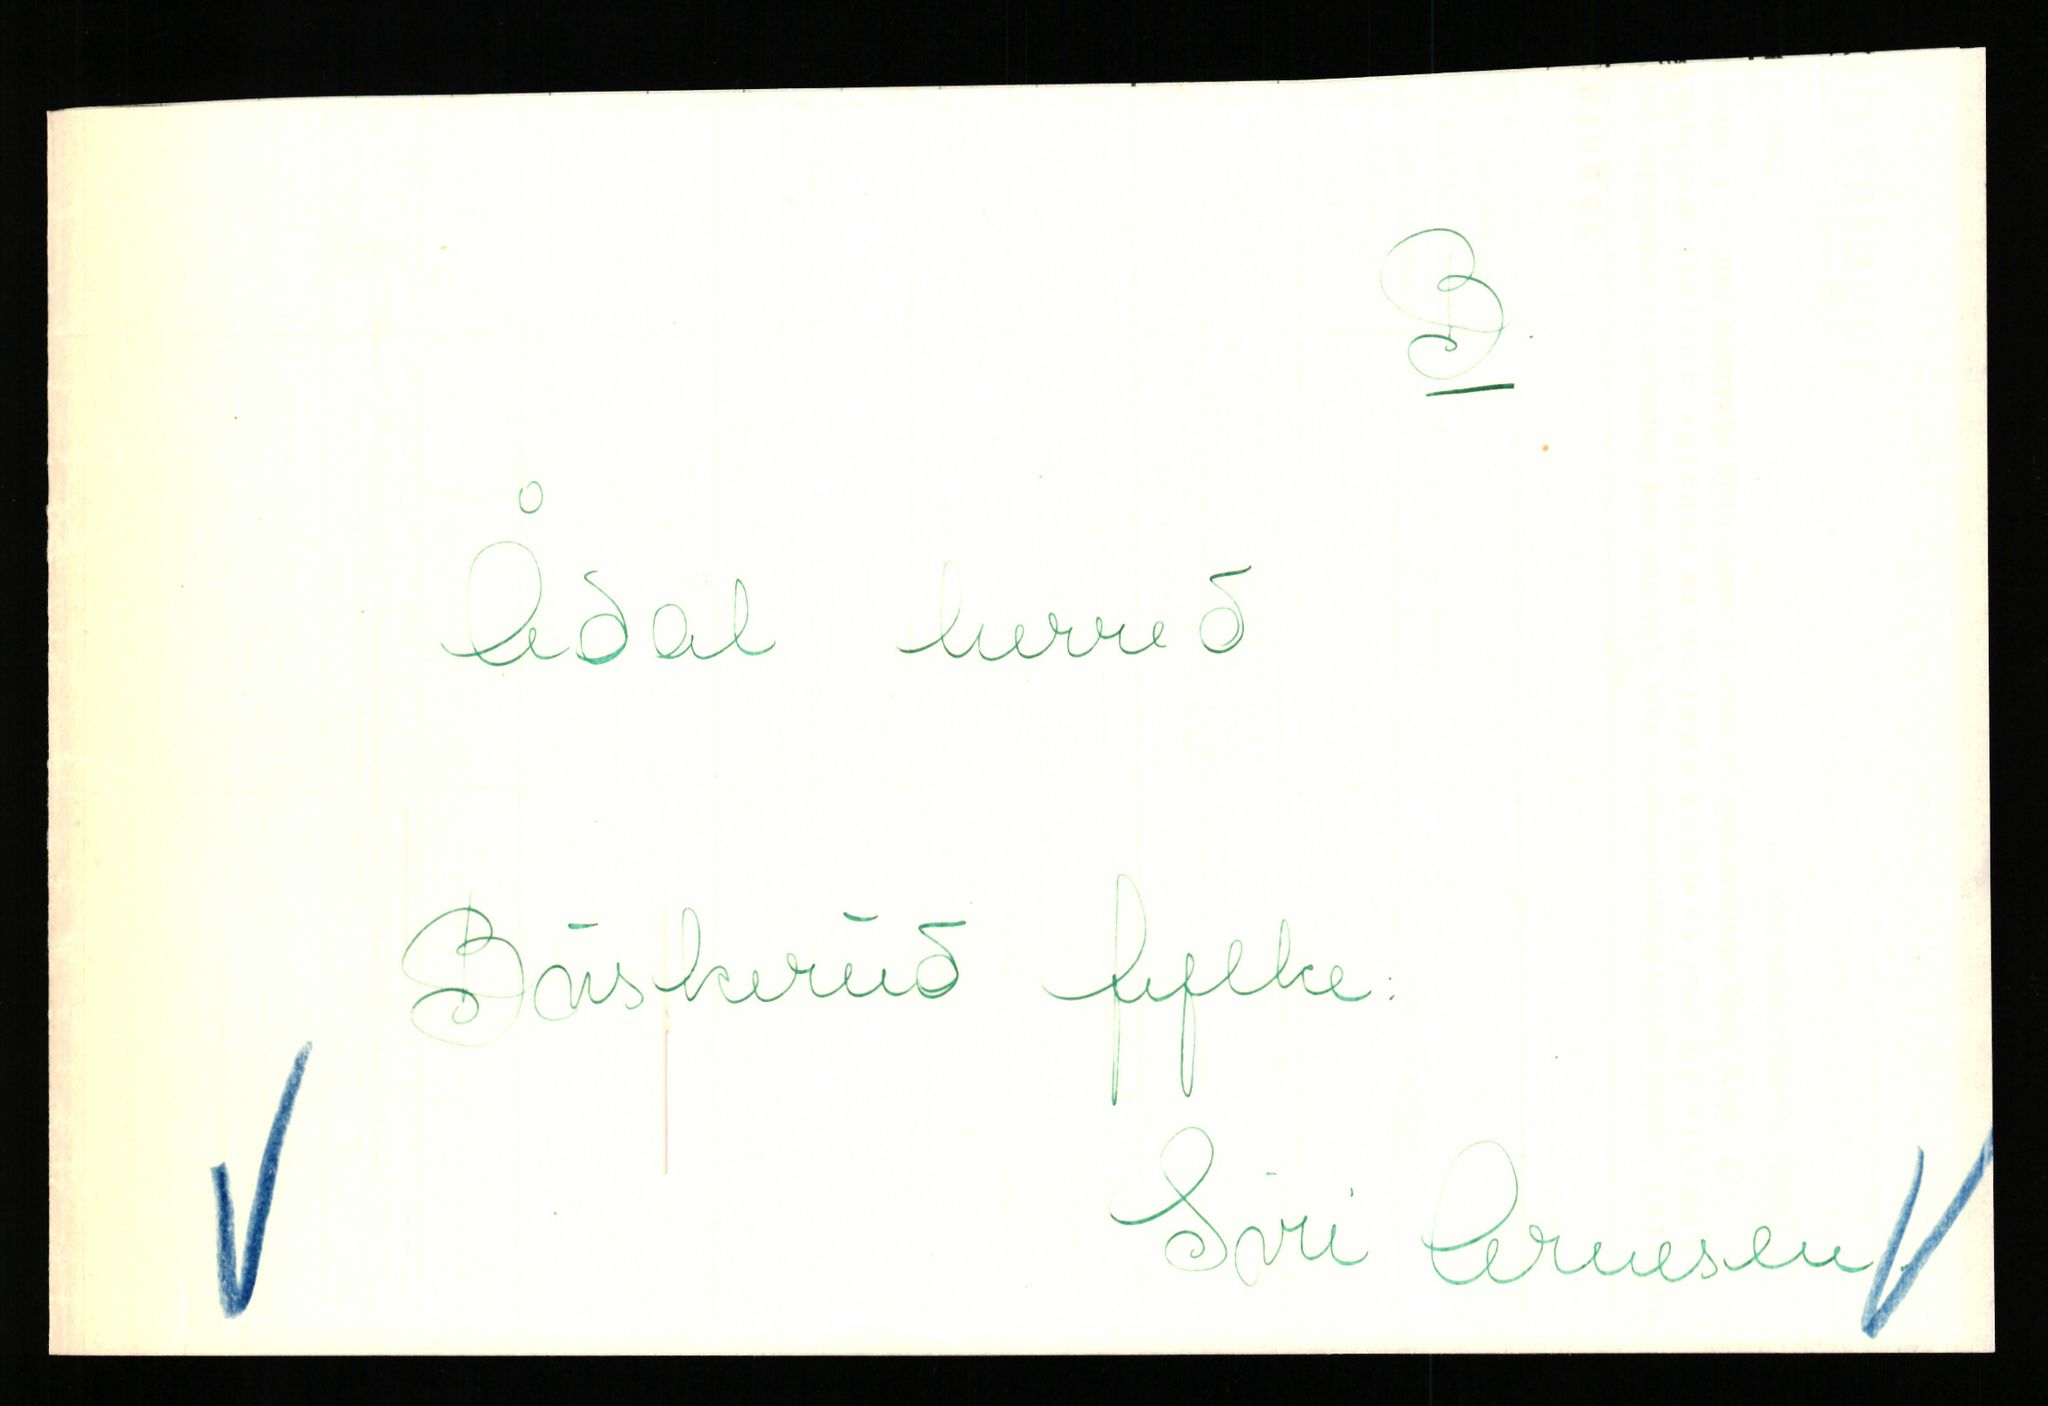 B
Ådal herred
Buskerud fylke.
Siri Arnesen